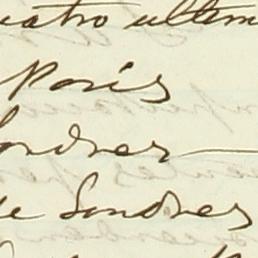 uatro ultim
Paris
Londres
de Londres